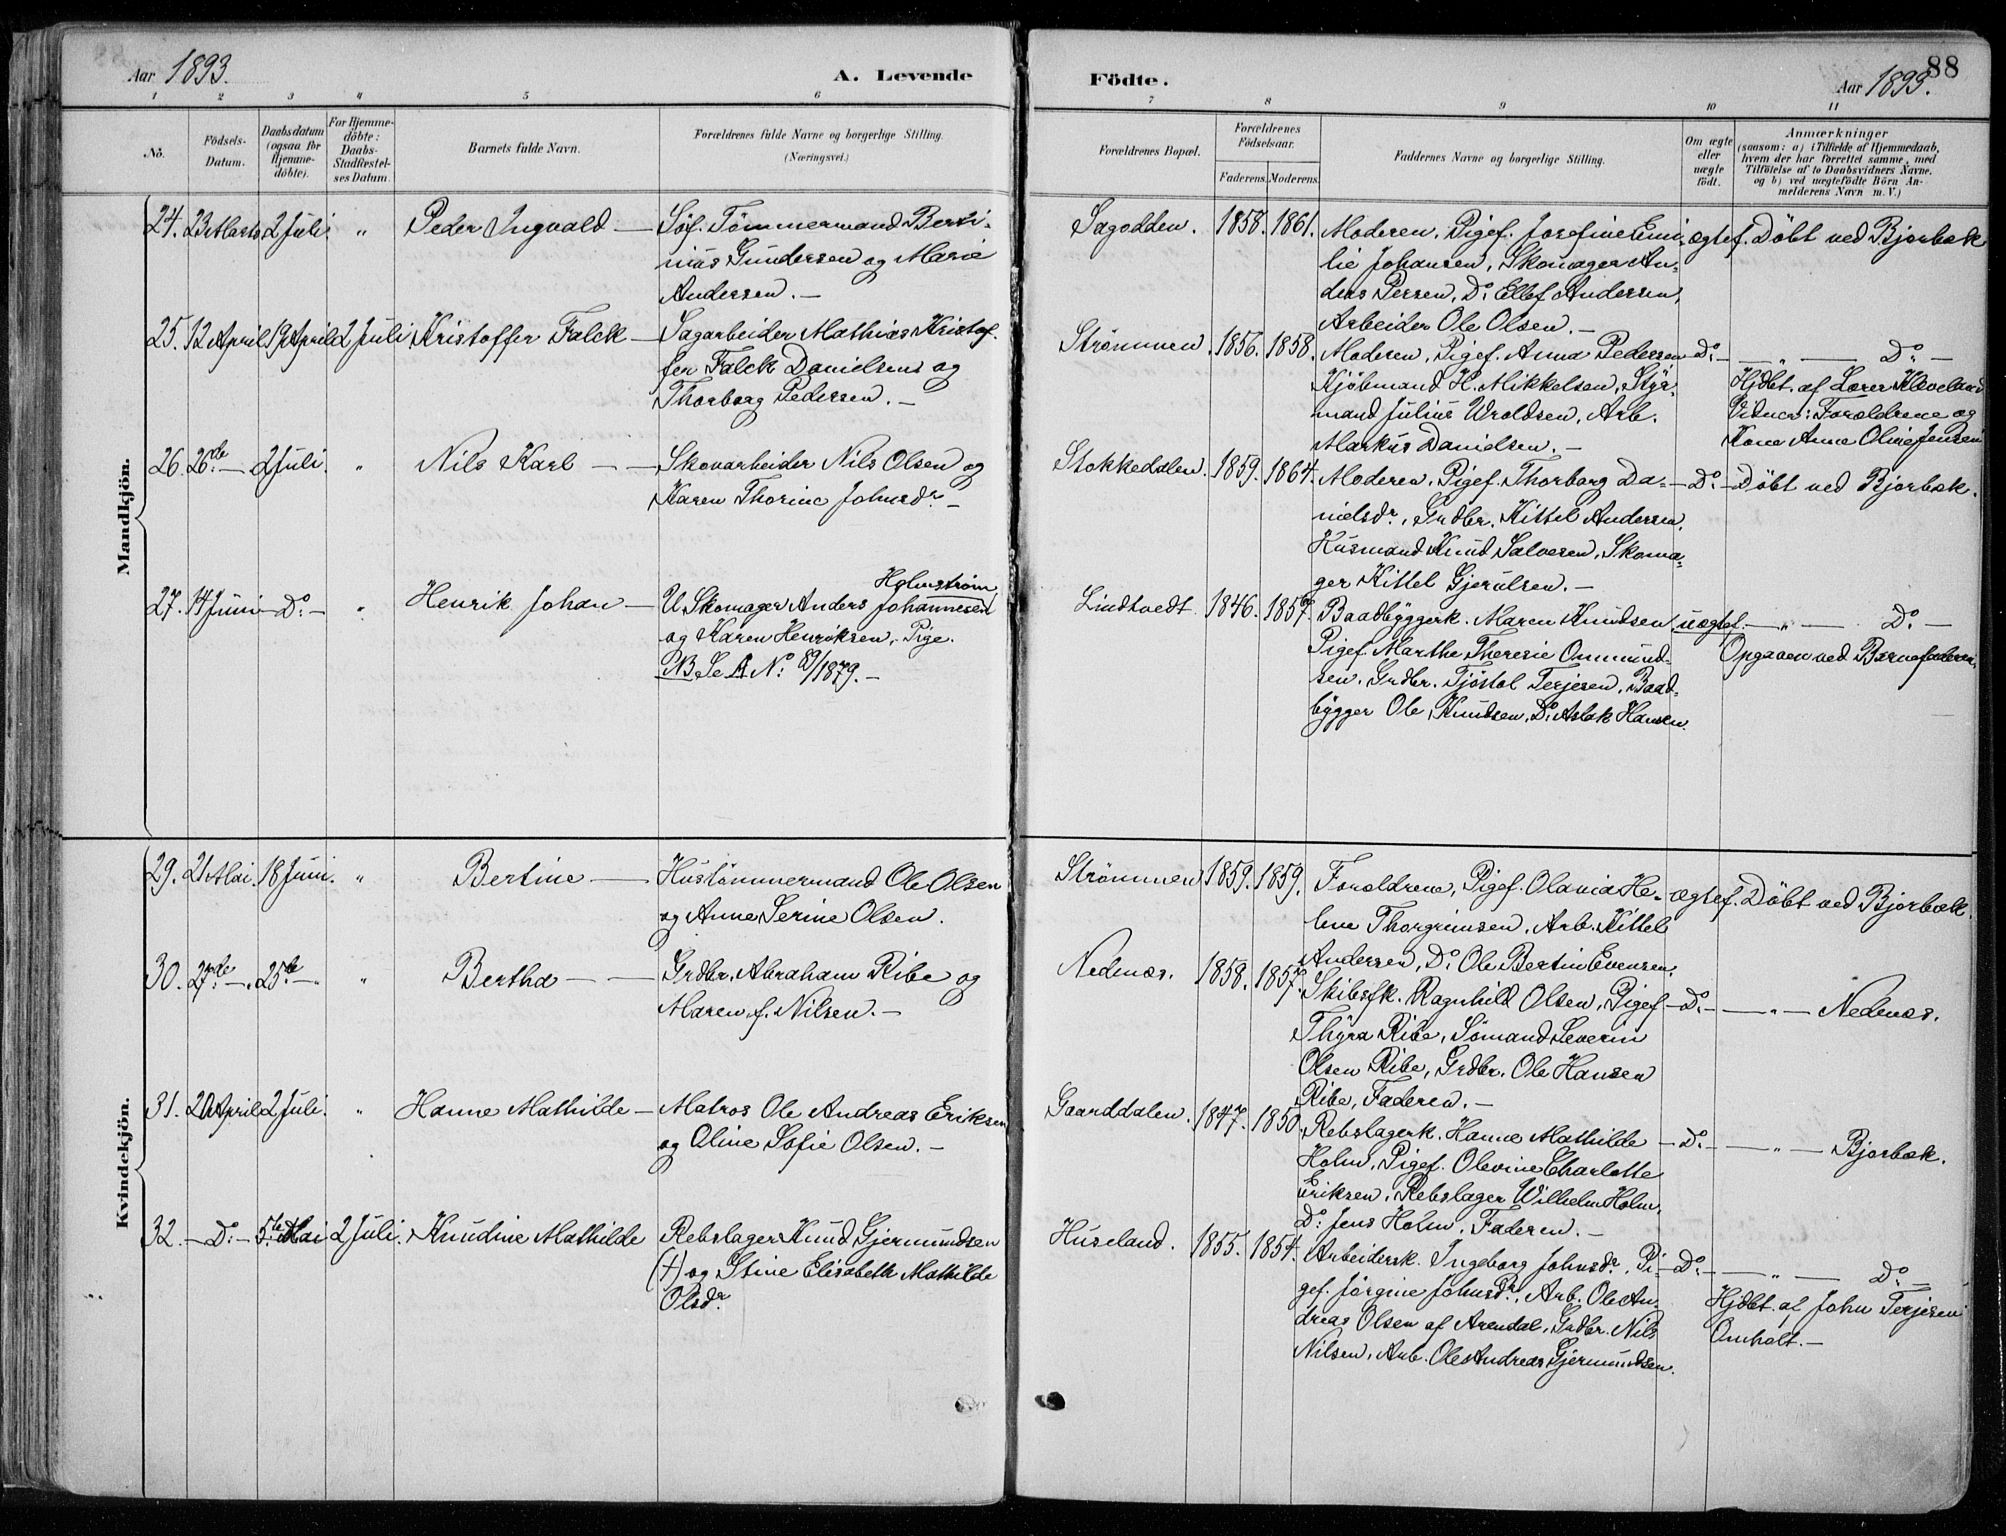 Aar 1893.
A. Levende
Födte.
Aar 1893.
88
1 2 3 4 5 6 7 8 9 10 11
No.
Födsels-
Datum.
Daabsdatum
(ogsaa for
Hjemme-
döbte).
For Hjemme-
döbte:
Daabs-
Stadfæstel-
ses Datum.
Barnets fulde Navn.
Forældrenes fulde Navne og borgerlige Stilling.
(Næringsvei.)
Forældrenes Bopæl.
Forældrenes
Födselsaar.
Faderens. Moderens.
Faddernes Navne og borgerlige Stilling.
Om ægte
eller
uægte
födt.
Anmærkninger
(saasom: a) i Tilfælde af Hjemmedaab,
hvem der har forrettet samme, med
Tilföielse af to Daabsvidners Navne,
og b) ved uægtefödte Börn An-
melderens Navn m. V.)
Mandkjön.
24. 23 Marts 2 Juli. " Peder Ingvald —
Søf. Tømmermand Berti-
nius Gundersen og Marie
Andersen. —
Sagodden. 1858. 1861.
Moderen, Pigef. Josefine Emi-
lie Johansen, Skomager An-
ders Persen, Do Ellef Andersen,
Arbeider Ole Olsen. —
ægtef. Döbt ved Bjorbæk
25. 12 April 19 April 2 Juli. Kristoffer Falck —
Sagarbeider Mathias Kristof-
fer Falck Danielsens og
Thorborg Pedersen. —
Strømmen. 1856. 1858.
Moderen, Pigef. Anna Pedersen
Kjöbmand H. Mikkelsen, Styr-
mand Julius Wroldsen, Arb.
Markus Danielsen. —
Do — " — Do —
Hjdbt. af Lærer Kleveland
Vidner: Forældrene og
Kone Anne Oline Jensen
26. 26de — 2 Juli. " Nils Karl — —
Skovarbeider Nils Olsen og
Karen Thorine Johnsdr. —
Stokkedalen. 1859. 1864.
Moderen, Pigef. Thorborg Da-
nielsdr., Grdbr. Kittel Andersen,
Husmand Knud Salvesen, Skoma-
ger Kittel Gjerulsen. —
Do — Döbt ved Bjorbæk.
27. 14 Juni — Do — " Henrik Johan —
Holmstrøm
U. Skomager Anders Johannesen
og Karen Henriksen, Pige.
NB Se A No 89/1879. —
Lindtvedt. 1846. 1857.
Baadbyggerk. Maren Knudsen
Pigef. Marthe Theresie Ommund-
sen, Grdbr. Tjöstol Terjesen, Baad-
bygger Ole Knudsen, Do Aslak Hansen.
uægtef. — " — Do —
Opgaven ved Barnefaderen
Kvindekjön.
29. 21 Mai. 18 Juni. " Bertine —
Hustömmermand Ole Olsen
og Anne Serine Olsen.
Strømmen 1859. 1859.
Forældrene, Pigef. Olavia He-
lene Thorgrimsen, Arb. Kittel
Andersen, Do Ole Bertin Evensen.
ægtef. Döbt ved Bjorbæk.
30. 27de — 25de — " Bertha — —
Grdbr. Abraham Ribe og
Maren f. Nilsen. —
Nedenæs. 1858. 1857.
Skibsfk. Ragnhild Olsen, Pigef.
Thyra Ribe, Sömand Severin
Olsen Ribe, Grdbr. Ole Hansen
Ribe, Faderen. —
Do — " — Nedenæs.
31. 20 April 2 Juli. " Hanne Mathilde —
Matros Ole Andreas Eriksen
og Oline Sofie Olsen. —
Gaarddalen. 1847. 1850
Rebslagerk. Hanne Mathilde
Holm, Pigef. Olevine Charlotte
Eriksen, Rebslager Wilhelm Holm,
Do Jens Holm, Faderen. —
Do — " — Bjorbæk.
32. — Do — 5te Mai 2 Juli. Knudine Mathilde
Rebslager Knud Gjermundsen
(†) og Stine Elisabeth Mathilde
Olsdr.
Huseland. 1855. 1854.
Arbeidersk. Ingeborg Johnsdr., Pi-
gef. Jörgine Johnsdr., Arb. Ole An-
dreas Olsen af Arendal, Grdbr. Nils
Nilsen, Arb. Ole Andreas Gjermundsen.
Do — " — Do —
Hjdbt. af John Terjesen
Omholt. —